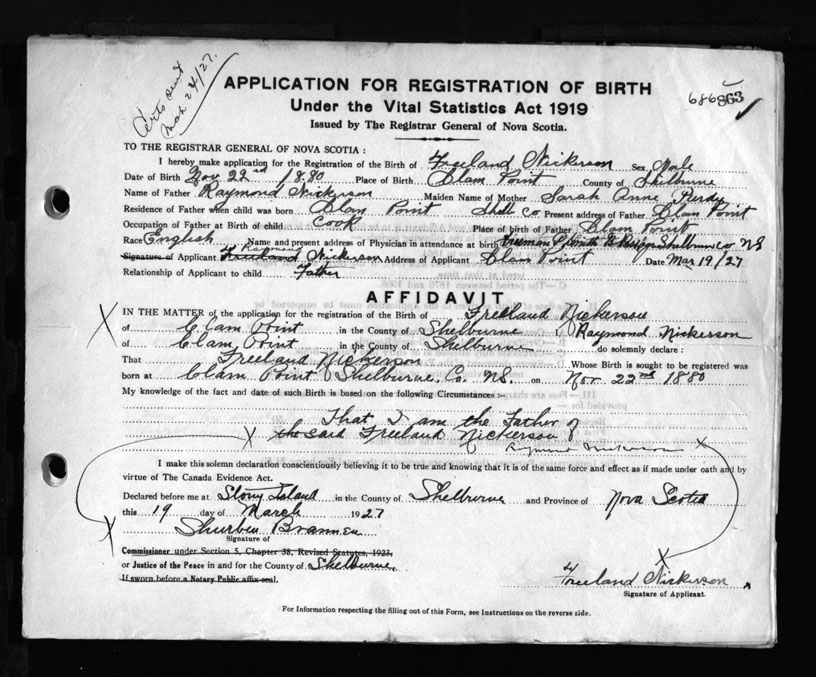 Certs sent
Mar 24/27.
APPLICATION FOR REGISTRATION OF BIRTH
686863
Under the Vital Statistics Act 1919
Issued by The Registrar General of Nova Scotia.
TO THE REGISTRAR GENERAL OF NOVA SCOTIA :
I hereby make application for the Registration of the Birth of Freeland Nickerson Sex Male
Date of Birth Nov 22nd 1880 Place of Birth Clam Point County of Shelburne
Name of Father Raymond Nickerson Maiden Name of Mother Sarah Anne Purdy
Residence of Father when child was born Clam Point Shelb Co. Present address of Father Clam Point
Occupation of Father at Birth of child Cook Place of birth of Father Clam Point
Race English Name and present address of Physician in attendance at birth Freeman Smith Shelburne Co NS
Raymond
Signature of Applicant Freeland Nickerson Address of Applicant Clam Point Date Mar 19/27
Relationship of Applicant to child Father
AFFIDAVIT
IN THE MATTER of the application for the registration of the Birth of Freeland Nickerson
of Clam Point in the County of Shelburne I, Raymond Nickerson
of Clam Point in the County of Shelburne do solemnly declare :
That Freeland Nickerson Whose Birth is sought to be registered was
born at Clam Point Shelburne, Co. NS. on Nov. 22nd 1880
My knowledge of the fact and date of such Birth is based on the following Circumstances :-
That I am the Father of
the said Freeland Nickerson
Raymond Nickerson
I make this solemn declaration conscientiously believing it to be true and knowing that it is of the same force and effect as if made under oath and by
virtue of The Canada Evidence Act.
Declared before me at Stony Island in the County of Shelburne and Province of Nova Scotia
this 19 day of March 1927
Shurben Brannen
Signature of
Commissioner under Section 5, Chapter 38, Revised Statutes, 1923,
or Justice of the Peace in and for the County of Shelburne,
If sworn before a Notary Public affix seal.
Freeland Nickerson
Signature of Applicant.
For Information respecting the filling out of this Form, see Instructions on the reverse side.